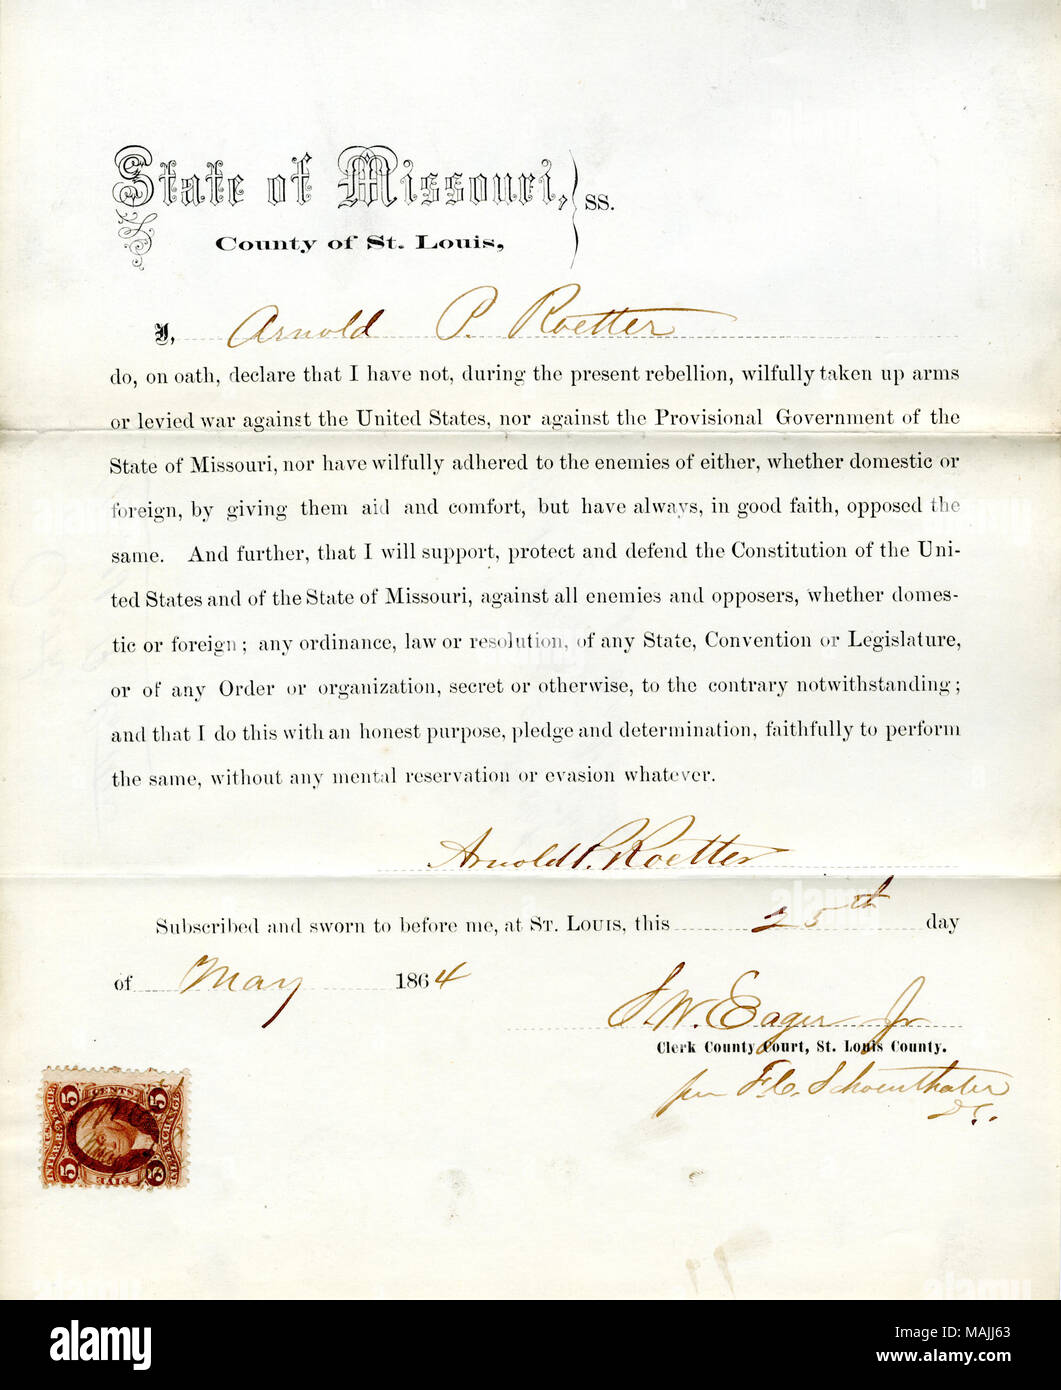 State of Missouri, } ss.
County of St. Louis,
I, Arnold P. Roetter
do, on oath, declare that I have not, during the present rebellion, wilfully taken up arms
or levied war against the United States, nor against the Provisional Government of the
State of Missouri, nor have wilfully adhered to the enemies of either, whether domestic or
foreign, by giving them aid and comfort, but have always, in good faith, opposed the
same. And further, that I will support, protect and defend the Constitution of the Uni-
ted States and of the State of Missouri, against all enemies and opposers, whether domes-
tic or foreign; any ordinance, law or resolution, of any State, Convention or Legislature,
or of any Order or organization, secret or otherwise, to the contrary notwithstanding;
and that I do this with an honest purpose, pledge and determination, faithfully to perform
the same, without any mental reservation or evasion whatever.
Arnold P. Roetter
Subscribed and sworn to before me, at St. Louis, this 25th day
of May 1864
S. W. Eager Jr
Clerk County Court, St. Louis County.
per F. C. Schoenthaler
D C.
5 CENTS 5
U.S. INTER. REVENUE
5 FIVE 5
alamy
Image ID: MAJJ63
www.alamy.com